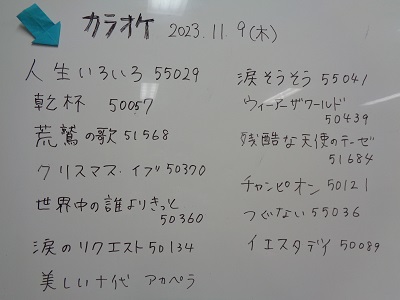 カラオケ 2023.11.9(木)
人生いろいろ 55029
乾杯 50057
荒鷲の歌 51568
クリスマス・イブ 50370
世界中の誰よりきっと
50360
涙のリクエスト 50134
美しい十代 アカペラ
涙そうそう 55041
ウィーアーザワールド
50439
残酷な天使のテーゼ
51684
チャンピオン 50121
つぐない 55036
イエスタデイ 50089